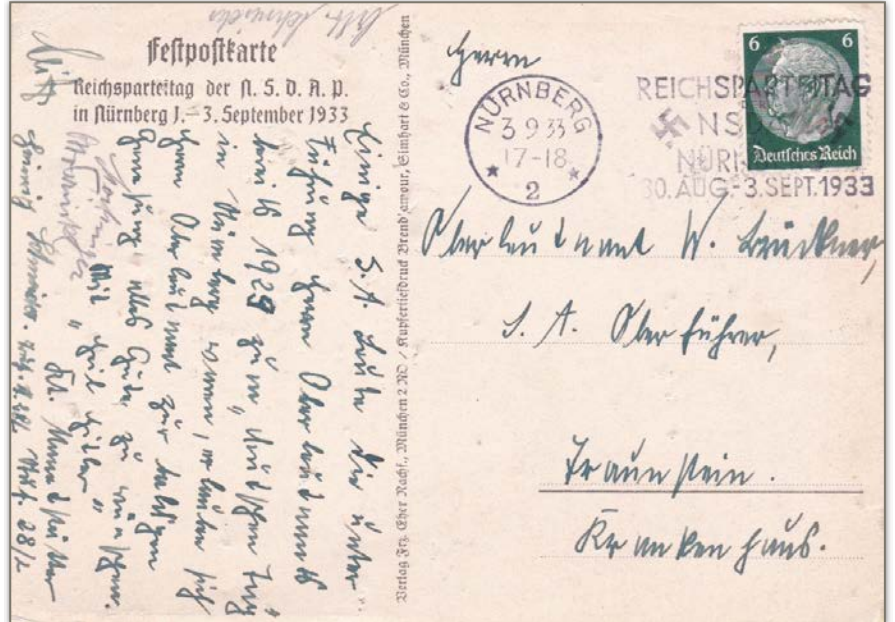 Festpostkarte
Reichsparteitag der N. S. D. A. P.
in Nürnberg 1.– 3. September 1933
Einige S.A Leute die unter
Führung Herrn Oberleutnants
bereits 1929 zum „deutschen Tag"
in Nürnberg waren, erlauben sich
Herrn Oberleutnant zur baldigen
Genesung alles Gute zu wünschen.
Mit „Heil Hitler"
Verlag Frz. Eher Nachf., München 2 NO / Kupfertiefdruck Brend'amour, Simhart & Co., München
Herrn
NÜRNBERG
3 9 33
17-18
2
REICHSPARTEITAG
NS
NÜRN
30. AUG.-3. SEPT. 1933
6 6
Deutsches Reich
Oberleutnant W. Brückner,
S. A. Oberführer,
Traunstein.
Krankenhaus.